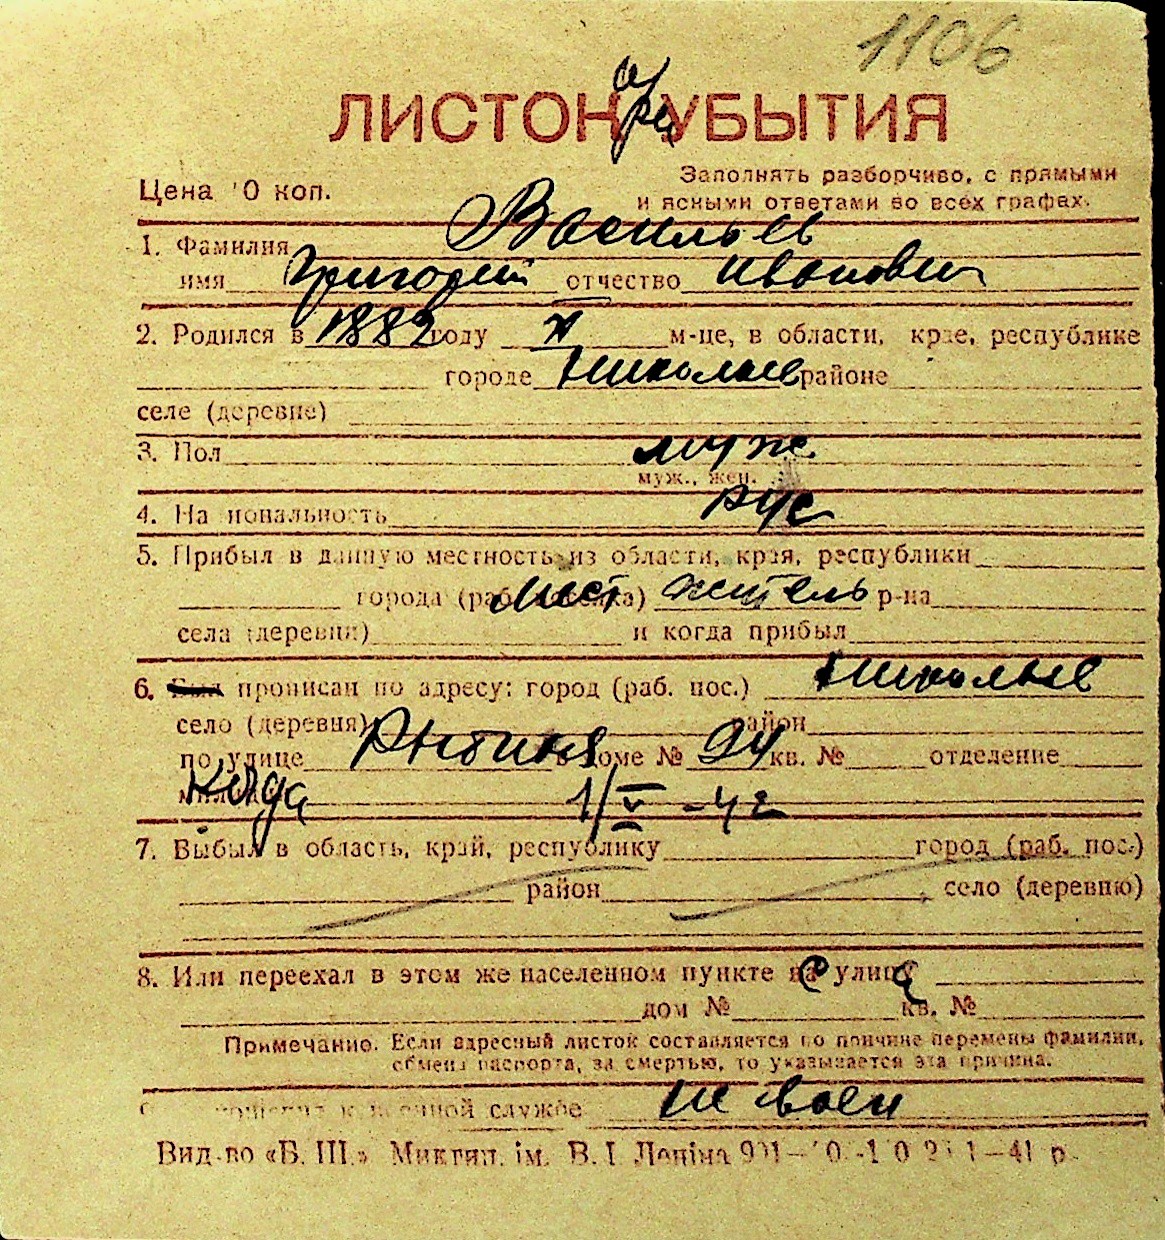 1106
ЛИСТОК УБЫТИЯ
Цена 10 коп.
Заполнять разборчиво, с прямыми
и ясными ответами во всех графах.
1. Фамилия Васильев
имя Григорий отчество Иванович
2. Родился в 1882 году м-це, в области, крае, республике
городе Николаев районе
селе (деревне)
3. Пол муж
муж., жен.
4. Национальность рус
5. Прибыл в данную местность из области, края, республики
города (раб. поселка) мест житель р-на
села (деревни) и когда прибыл
6. Был прописан по адресу: город (раб. пос.) Николаев
село (деревня) район
по улице Рыбная в доме № 24 кв. № отделение
когда 1/V-42
7. Выбыл в область, край, республику город (раб. пос.)
район село (деревню)
8. Или переехал в этом же населенном пункте на улицу
дом № кв. №
Примечание. Если адресный листок составляется по причине перемены фамилии,
обмена паспорта, за смертью, то указывается эта причина.
к военной службе не воен
Вид-во «Б. Ш.» Микгип. ім. В. І. Леніна